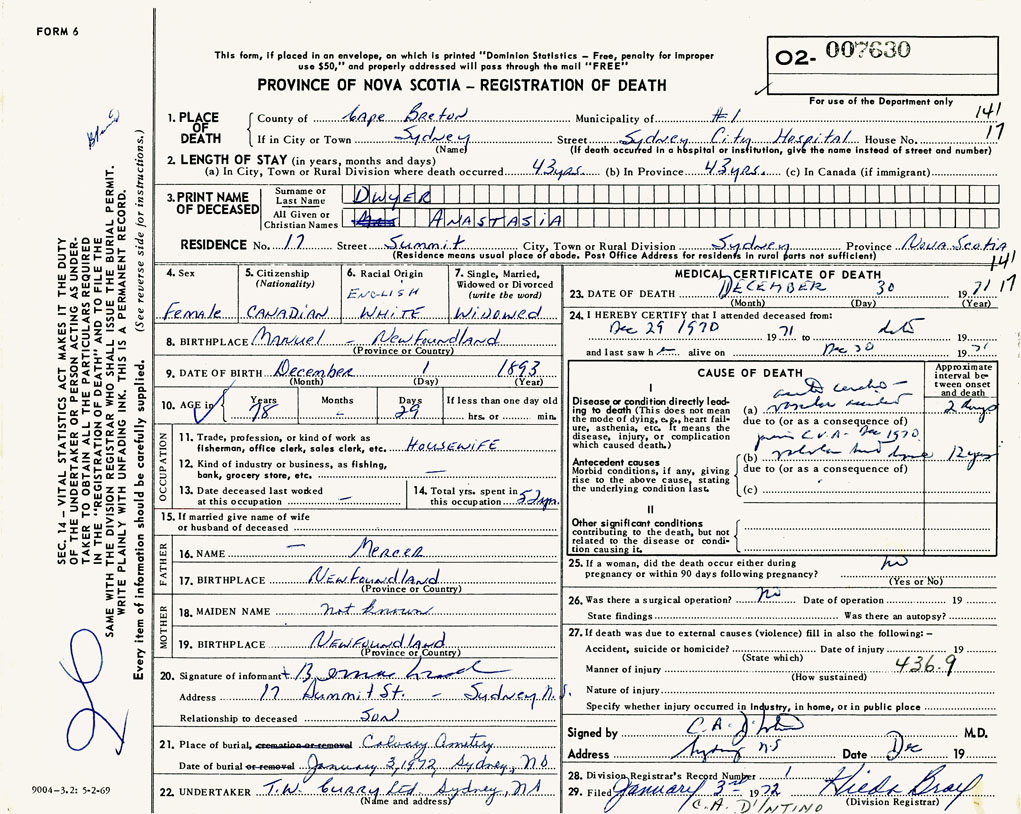 FORM 6
O2- 007630
This form, if placed in an envelope, on which is printed "Dominion Statistics – Free, penalty for improper
use $50," and properly addressed will pass through the mail "FREE"
PROVINCE OF NOVA SCOTIA – REGISTRATION OF DEATH
For use of the Department only
141
17
1. PLACE OF DEATH
County of Cape Breton Municipality of #1
If in City or Town Sydney Street Sydney City Hospital House No.
(Name) (If death occurred in a hospital or institution, give the name instead of street and number)
2. LENGTH OF STAY (in years, months and days)
(a) In City, Town or Rural Division where death occurred 43 yrs. (b) In Province 43 yrs. (c) In Canada (if immigrant)
3. PRINT NAME OF DECEASED
Surname or Last Name DWYER
All Given or Christian Names ANASTASIA
RESIDENCE No. 17 Street Summit City, Town or Rural Division Sydney Province Nova Scotia
(Residence means usual place of abode. Post Office Address for residents in rural parts not sufficient)
141
17
4. Sex Female
5. Citizenship (Nationality) CANADIAN
6. Racial Origin ENGLISH WHITE
7. Single, Married, Widowed or Divorced (write the word) WIDOWED
8. BIRTHPLACE Manuel – Newfoundland
(Province or Country)
9. DATE OF BIRTH December 1 1893
(Month) (Day) (Year)
10. AGE in Years 78 Months – Days 29 If less than one day old
hrs. or min.
OCCUPATION
11. Trade, profession, or kind of work as
fisherman, office clerk, sales clerk, etc. HOUSEWIFE
12. Kind of industry or business, as fishing,
bank, grocery store, etc. —
13. Date deceased last worked
at this occupation –
14. Total yrs. spent in
this occupation 52 yrs.
15. If married give name of wife
or husband of deceased
FATHER
16. NAME — Mercer
17. BIRTHPLACE Newfoundland
(Province or Country)
MOTHER
18. MAIDEN NAME not known
19. BIRTHPLACE Newfoundland
(Province or Country)
20. Signature of informant
Address 17 Summit St. – Sydney N.S.
Relationship to deceased SON
21. Place of burial, cremation or removal Calvary Cemetery
Date of burial or removal January 3, 1972 Sydney, NS
22. UNDERTAKER T.W. Curry Ltd. Sydney, NS
(Name and address)
MEDICAL CERTIFICATE OF DEATH
23. DATE OF DEATH DECEMBER 30 1971
(Month) (Day) (Year)
24. I HEREBY CERTIFY that I attended deceased from:
Dec 29 1970 1971 to date
and last saw h alive on Dec 30 1971
CAUSE OF DEATH
Approximate interval between onset and death
I
Disease or condition directly leading to death (This does not mean the mode of dying, e.g., heart failure, asthenia, etc. It means the disease, injury, or complication which caused death.)
(a) acute cerebro-
vascular accident 2 days
due to (or as a consequence of)
C.V.A – Dec 1970
Antecedent causes
Morbid conditions, if any, giving rise to the above cause, stating the underlying condition last.
(b) 12 yrs
due to (or as a consequence of)
(c)
II
Other significant conditions
contributing to the death, but not related to the disease or condition causing it.
25. If a woman, did the death occur either during
pregnancy or within 90 days following pregnancy? no
(Yes or No)
26. Was there a surgical operation? No Date of operation 19
State findings Was there an autopsy?
27. If death was due to external causes (violence) fill in also the following: –
Accident, suicide or homicide? Date of injury 19
(State which)
Manner of injury 436.9
(How sustained)
Nature of injury
Specify whether injury occurred in Industry, in home, or in public place
Signed by C.A. D'Intino M.D.
Address Sydney NS Date Dec 19
28. Division Registrar's Record Number 1
29. Filed January 3rd 1972
(Division Registrar)
C.A. D'INTINO
SEC. 14 – VITAL STATISTICS ACT MAKES IT THE DUTY
OF THE UNDERTAKER OR PERSON ACTING AS UNDER-
TAKER TO OBTAIN ALL THE PARTICULARS REQUIRED
IN THE "REGISTRATION OF DEATH" AND TO FILE THE
SAME WITH THE DIVISION REGISTRAR WHO SHALL ISSUE THE BURIAL PERMIT.
WRITE PLAINLY WITH UNFADING INK. THIS IS A PERMANENT RECORD.
Every item of information should be carefully supplied. (See reverse side for instructions.)
9004-3.2: 5-2-69